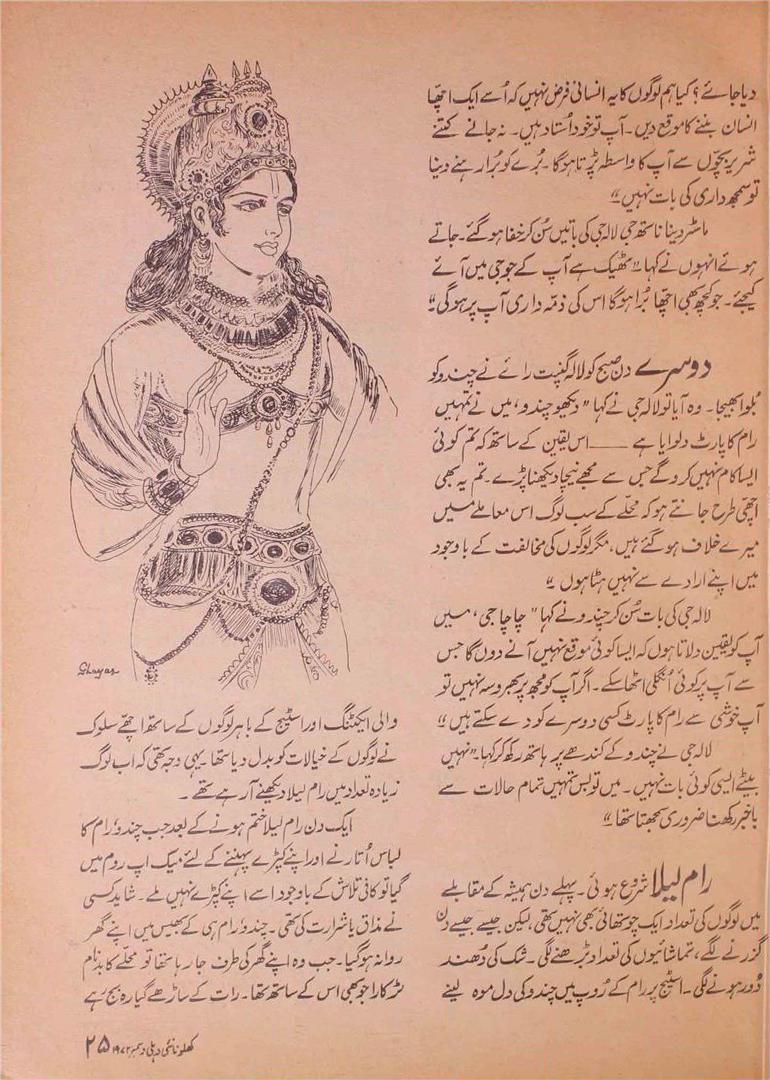 دیا جائے؟ کیا ہم لوگوں کا یہ انسانی فرض نہیں کہ اُسے ایک اچھّا
انسان بننے کا موقع دیں۔ آپ تو خود اُستاد ہیں۔ نہ جانے کتنے
شریر بچّوں سے آپ کا واسطہ پڑتا ہوگا۔ بُرے کو بُرا رہنے دینا
تو سمجھ داری کی بات نہیں"
ماسٹر دینا ناتھ جی لالہ جی کی باتیں سُن کر خفا ہو گئے۔ جاتے
ہوئے انہوں نے کہا "ٹھیک ہے آپ کے جو جی میں آئے
کیجئے۔ جو کچھ بھی اچھّا بُرا ہوگا اس کی ذمّہ داری آپ پر ہوگی"
دوسرے دن صبح کو لالہ گنپت رائے نے چندو کو
بُلوا بھیجا۔ وہ آیا تو لالہ جی نے کہا "دیکھو چندو، میں نے تمہیں
رام کا پارٹ دلوایا ہے ــــــ اس یقین کے ساتھ کہ تم کوئی
ایسا کام نہیں کرو گے جس سے مجھے نیچا دیکھنا پڑے۔ تم یہ بھی
اچھّی طرح جانتے ہو کہ محلّے کے سب لوگ اس معاملے میں
میرے خلاف ہو گئے ہیں، مگر لوگوں کی مخالفت کے باوجود
میں اپنے ارادے سے نہیں ہٹا ہوں"
لالہ جی کی بات سُن کر چندو نے کہا "چاچا جی، میں
آپ کو یقین دلاتا ہوں کہ ایسا کوئی موقع نہیں آنے دوں گا جس
سے آپ پر کوئی اُنگلی اٹھا سکے۔ اگر آپ کو مجھ پر بھروسہ نہیں تو
آپ خوشی سے رام کا پارٹ کسی دوسرے کو دے سکتے ہیں"
لالہ جی نے چندو کے کندھے پر ہاتھ رکھ کر کہا۔ "نہیں
بیٹے ایسی کوئی بات نہیں۔ میں تو بس تمہیں تمام حالات سے
باخبر رکھنا ضروری سمجھتا تھا"
رام لیلا شروع ہوئی۔ پہلے دن ہمیشہ کے مقابلے
میں لوگوں کی تعداد ایک چوتھائی بھی نہیں تھی، لیکن جیسے جیسے دن
گزرنے لگے، تماشائیوں کی تعداد بڑھنے لگی۔ شک کی دُھند
دُور ہونے لگی۔ اسٹیج پر رام کے رُوپ میں چندو کی دل موہ لینے
Shayas
والی ایکٹنگ اور اسٹیج کے باہر لوگوں کے ساتھ اچھّے سلوک
نے لوگوں کے خیالات کو بدل دیا تھا۔ یہی وجہ تھی کہ اب لوگ
زیادہ تعداد میں رام لیلا دیکھنے آ رہے تھے۔
ایک دن رام لیلا ختم ہونے کے بعد جب چندو، رام کا
لباس اُتارنے اور اپنے کپڑے پہننے کے لئے میک اپ روم میں
گیا تو کافی تلاش کے باوجود اسے اپنے کپڑے نہیں ملے۔ شاید کسی
نے مذاق یا شرارت کی تھی۔ چندو، رام ہی کے بھیس میں اپنے گھر
روانہ ہو گیا۔ جب وہ اپنے گھر کی طرف جا رہا تھا تو محلّے کا بدنام
لڑکا راجو بھی اس کے ساتھ تھا۔ رات کے ساڑھے گیارہ بج رہے
کھلونا نئی دہلی دسمبر ۱۹۷۲ ۲۵